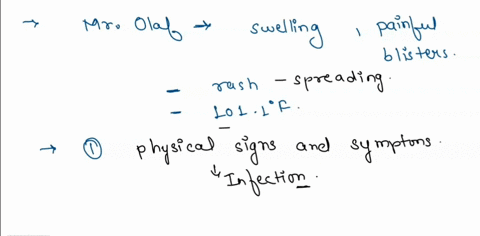 → Mr. Olaf → swelling, painful
blisters.
- rash - spreading.
- 101.1°F.
→ ① physical signs and symptons.
↳ Infection.